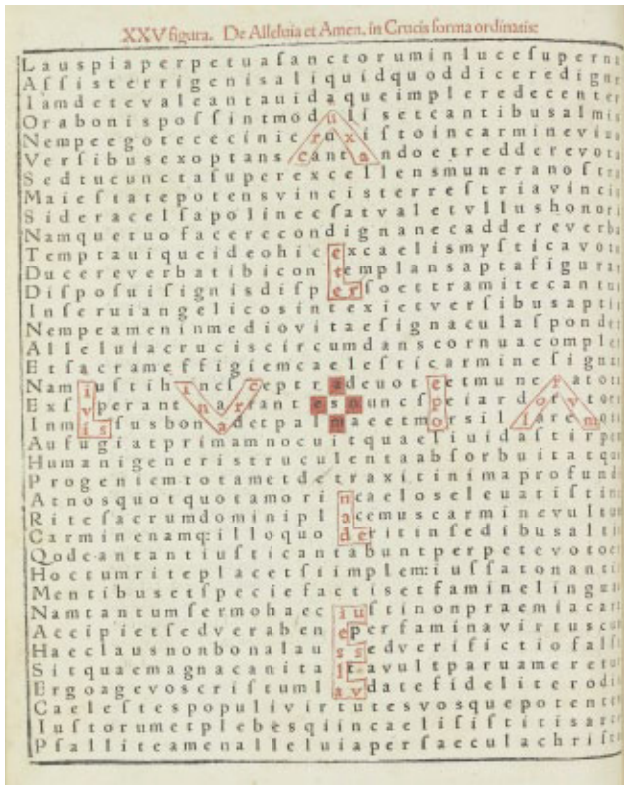 XXV figura. De Alleluia et Amen, in Crucis forma ordinatis:
Lauspiaperpetuaſanctoruminluceſuperni
Aſſiſterrigenisaliquidquoddiceredigne
Iamdetevaleantauidaqueimpleredecenter
Orabonispoſſintmoduliſetcantibusalmis
Nempeegotececinicruxiſtoincarminevi
Verſibusexoptanscantandoetredderevota
Sedtucunctaſuperexcellensmuneranoſtra
Maieſtatepotensvinciſterreſtriavincis
Sideracelſapolinecſatvaletvllushonori
Namquetuofacerecondignanecaddereverba
Temptauiqueideohicexcaelismyſticavot
Ducereverbatibicontemplansaptafigura
Diſpoſuiſignisdiſperſoettramitecantu
Inſeruiangelicosintexietverſibusaptis
Nempeameninmediovitaeſignaculaſponde
Alleluiacruciscircumdanscornuacomple
Etſacrameffigiemcaeleſticarmineſigni
Namiuſtihincſceptradeuoteetmuneratori
Exſperantnarrantesnuncſpeiardorvtor
Inmiſſusbonadetpalmaeetmorsillaremo
Aufugiatprimamnocuitquaeliuidaſtirp
Humanigeneriſtruculentaabſorbuitatq
Progeniemtotametdetraxitinimaprofund
Atnosquotquotamorincaeloseleuatiſtin
Riteſacrumdominiplacemuscarminevultu
Carminenamq:illoquoderitinſedibusalti
Qodcantantiuſticantabuntperpetevotoc
Hoctumriteplacetſtimplem:iuſſatonanti
Mentibusetſpeciefactiſetfaminelingu
Namtantumſermohaeciuſtinonpraemiacar
Accipietſedverabenepperfaminavirtus
Haeclausnonbonalausſedverifictiofalſ
Sitquaemagnacanitaltavultparuameret
Ergoagevoscriſtumlavdatefideliterodi
Caeleſtespopulivirtutesvosquepotente
Iuſtorumetplebesqiincaeliſiſtitisar
Pſalliteamenalleluiaperſaeculachriſt